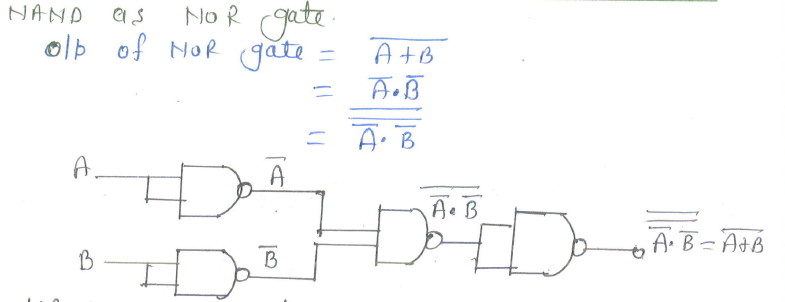 NAND as NOR gate.
o/p of NOR gate = \overline{A+B}
= \overline{A}.\overline{B}
= \overline{\overline{\overline{A}.\overline{B}}}
A \overline{A}
\overline{\overline{A}.\overline{B}}
\overline{\overline{\overline{A}.\overline{B}}} = \overline{A+B}
B \overline{B}